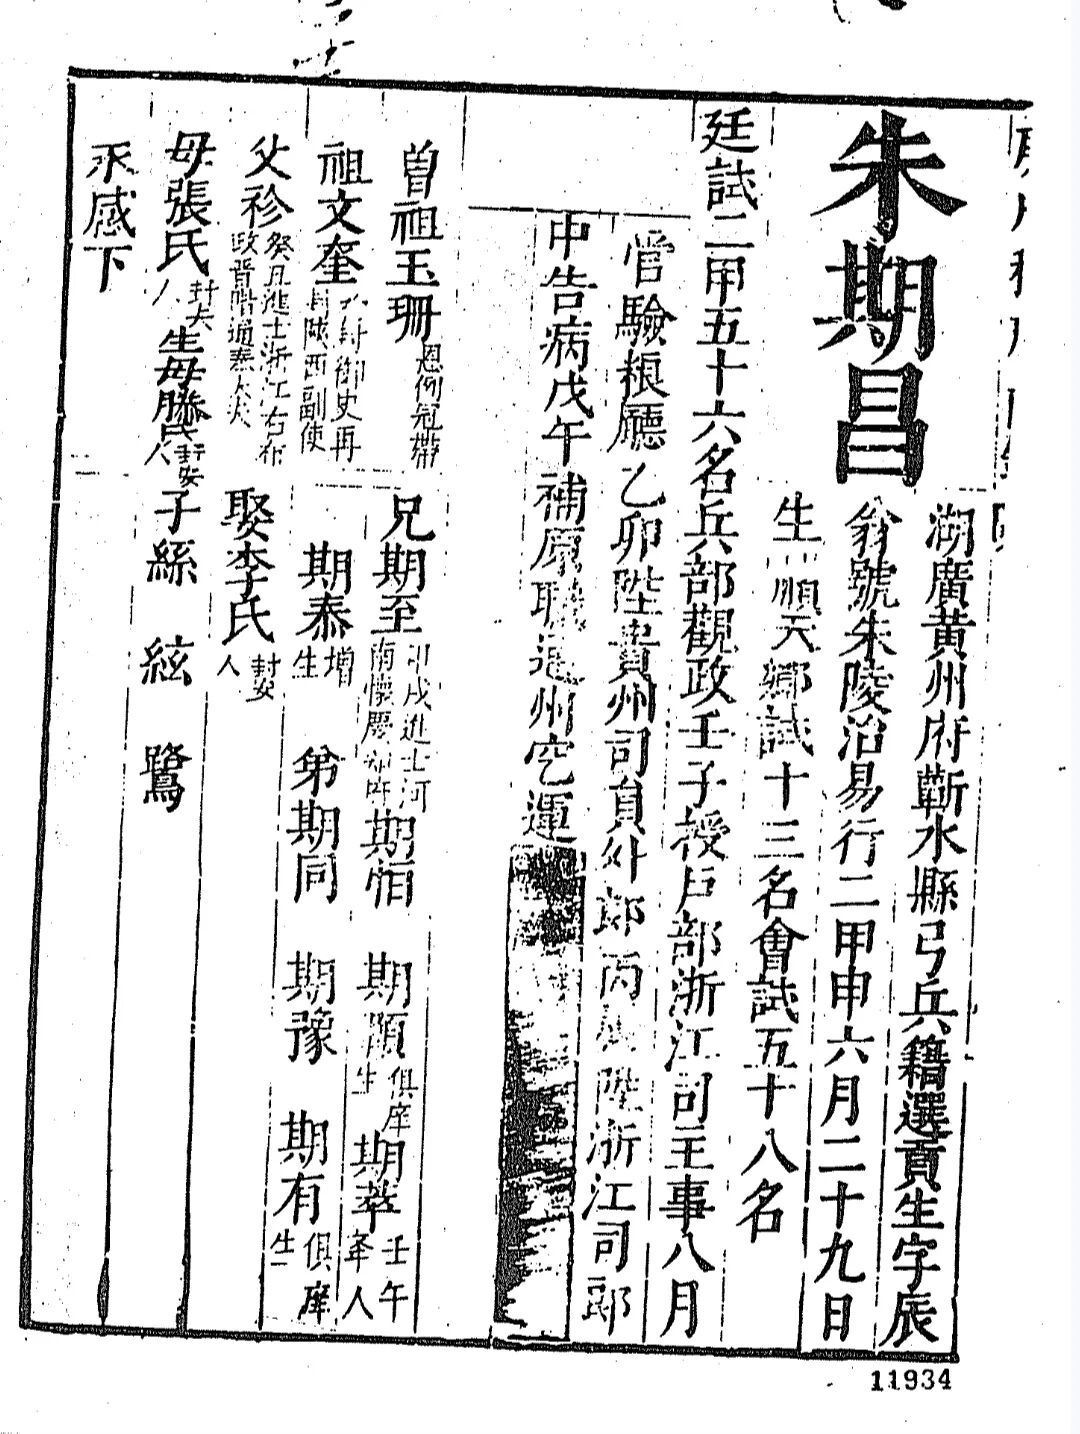 朱期昌
湖廣黃州府蘄水縣弓兵籍選貢生字辰
翁號朱陵治易行二甲申六月二十九日
生順天鄉試十三名會試五十八名
廷試二甲五十六名兵部觀政壬子授戶部浙江司主事八月
管驗粮廳乙卯陞貴州司員外郎丙陞浙江司郎
中告病戊午補原職通州空運
曾祖玉珊恩例冠帶
祖文奎封御史再封陝西副使
父袗癸丑進士浙江右布政晉階通奉大夫
母張氏封夫人生母滕氏封安人
永感下
兄期至戌進士河南懷慶
期怕期順俱庠生期萃壬午年人
期泰增生弟期同期豫期有俱庠生
娶李氏封安人
子絲絃鷺
二
11934